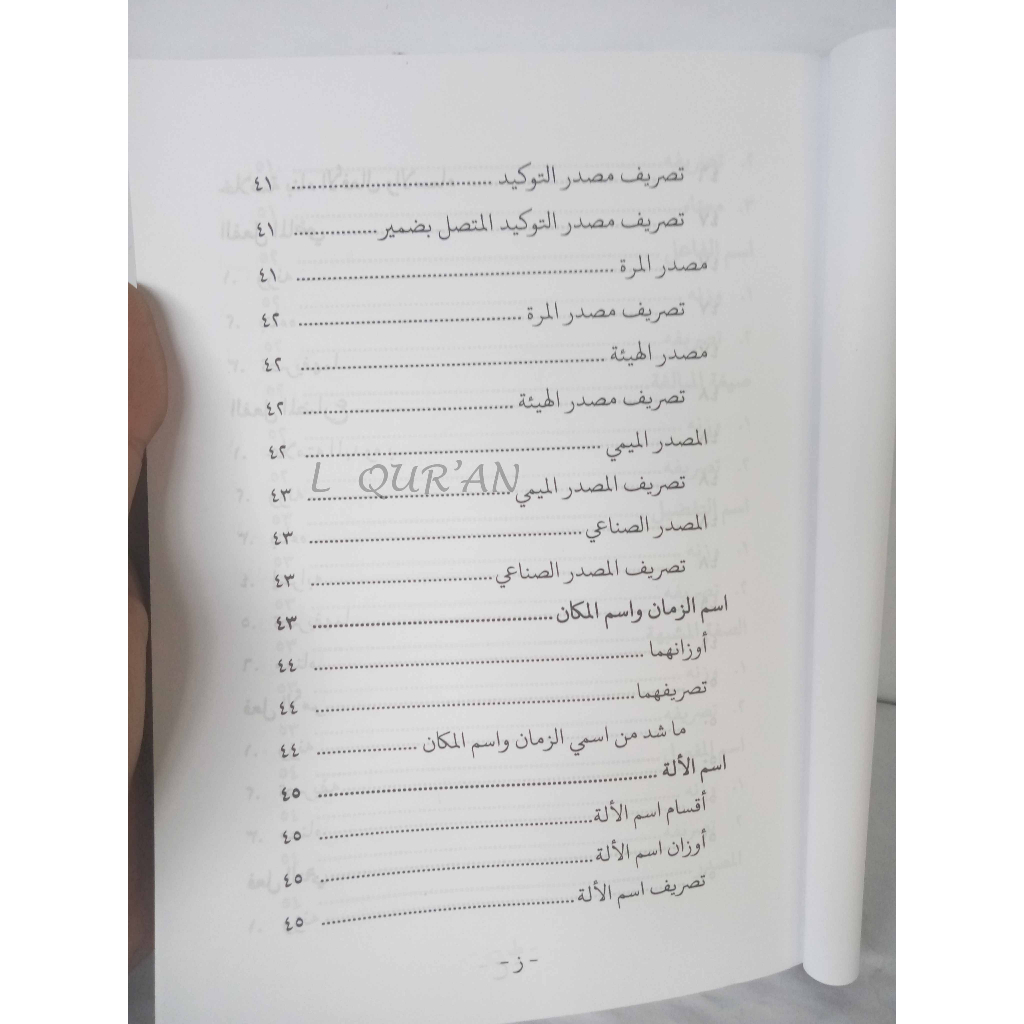 تصريف مصدر التوكيد ................................ ٤١
تصريف مصدر التوكيد المتصل بضمير ................ ٤١
مصدر المرة ................................ ٤١
تصريف مصدر المرة ................................ ٤٢
مصدر الهيئة ................................ ٤٢
تصريف مصدر الهيئة ................................ ٤٢
المصدر الميمي ................................ ٤٢
L QUR'AN
تصريف المصدر الميمي ................................ ٤٣
المصدر الصناعي ................................ ٤٣
تصريف المصدر الصناعي ................................ ٤٣
اسم الزمان واسم المكان ................................ ٤٣
أوزانهما ................................ ٤٤
تصريفهما ................................ ٤٤
ما شد من اسمي الزمان واسم المكان .................... ٤٤
اسم الألة ................................ ٤٥
أقسام اسم الألة ................................ ٤٥
أوزان اسم الألة ................................ ٤٥
تصريف اسم الألة ................................ ٤٥
- ز -